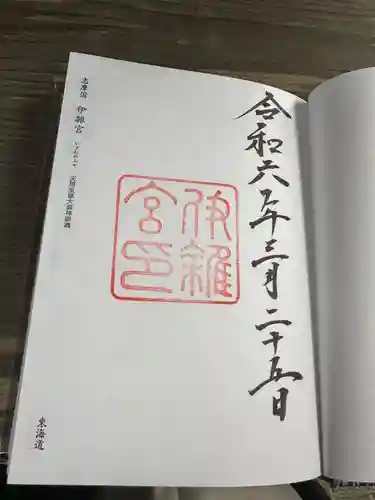 令和六年三月二十五日
伊雜
宮印
志摩国 伊雜宮 いざわのみや 天照坐皇大御神御魂
東海道